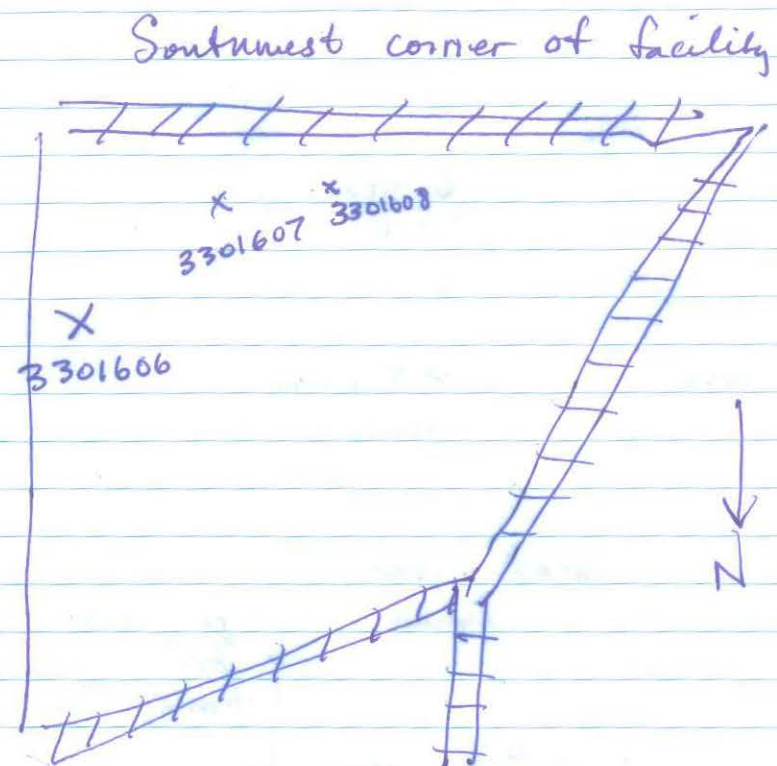 Southwest corner of facility
3301607
3301608
3301606
N